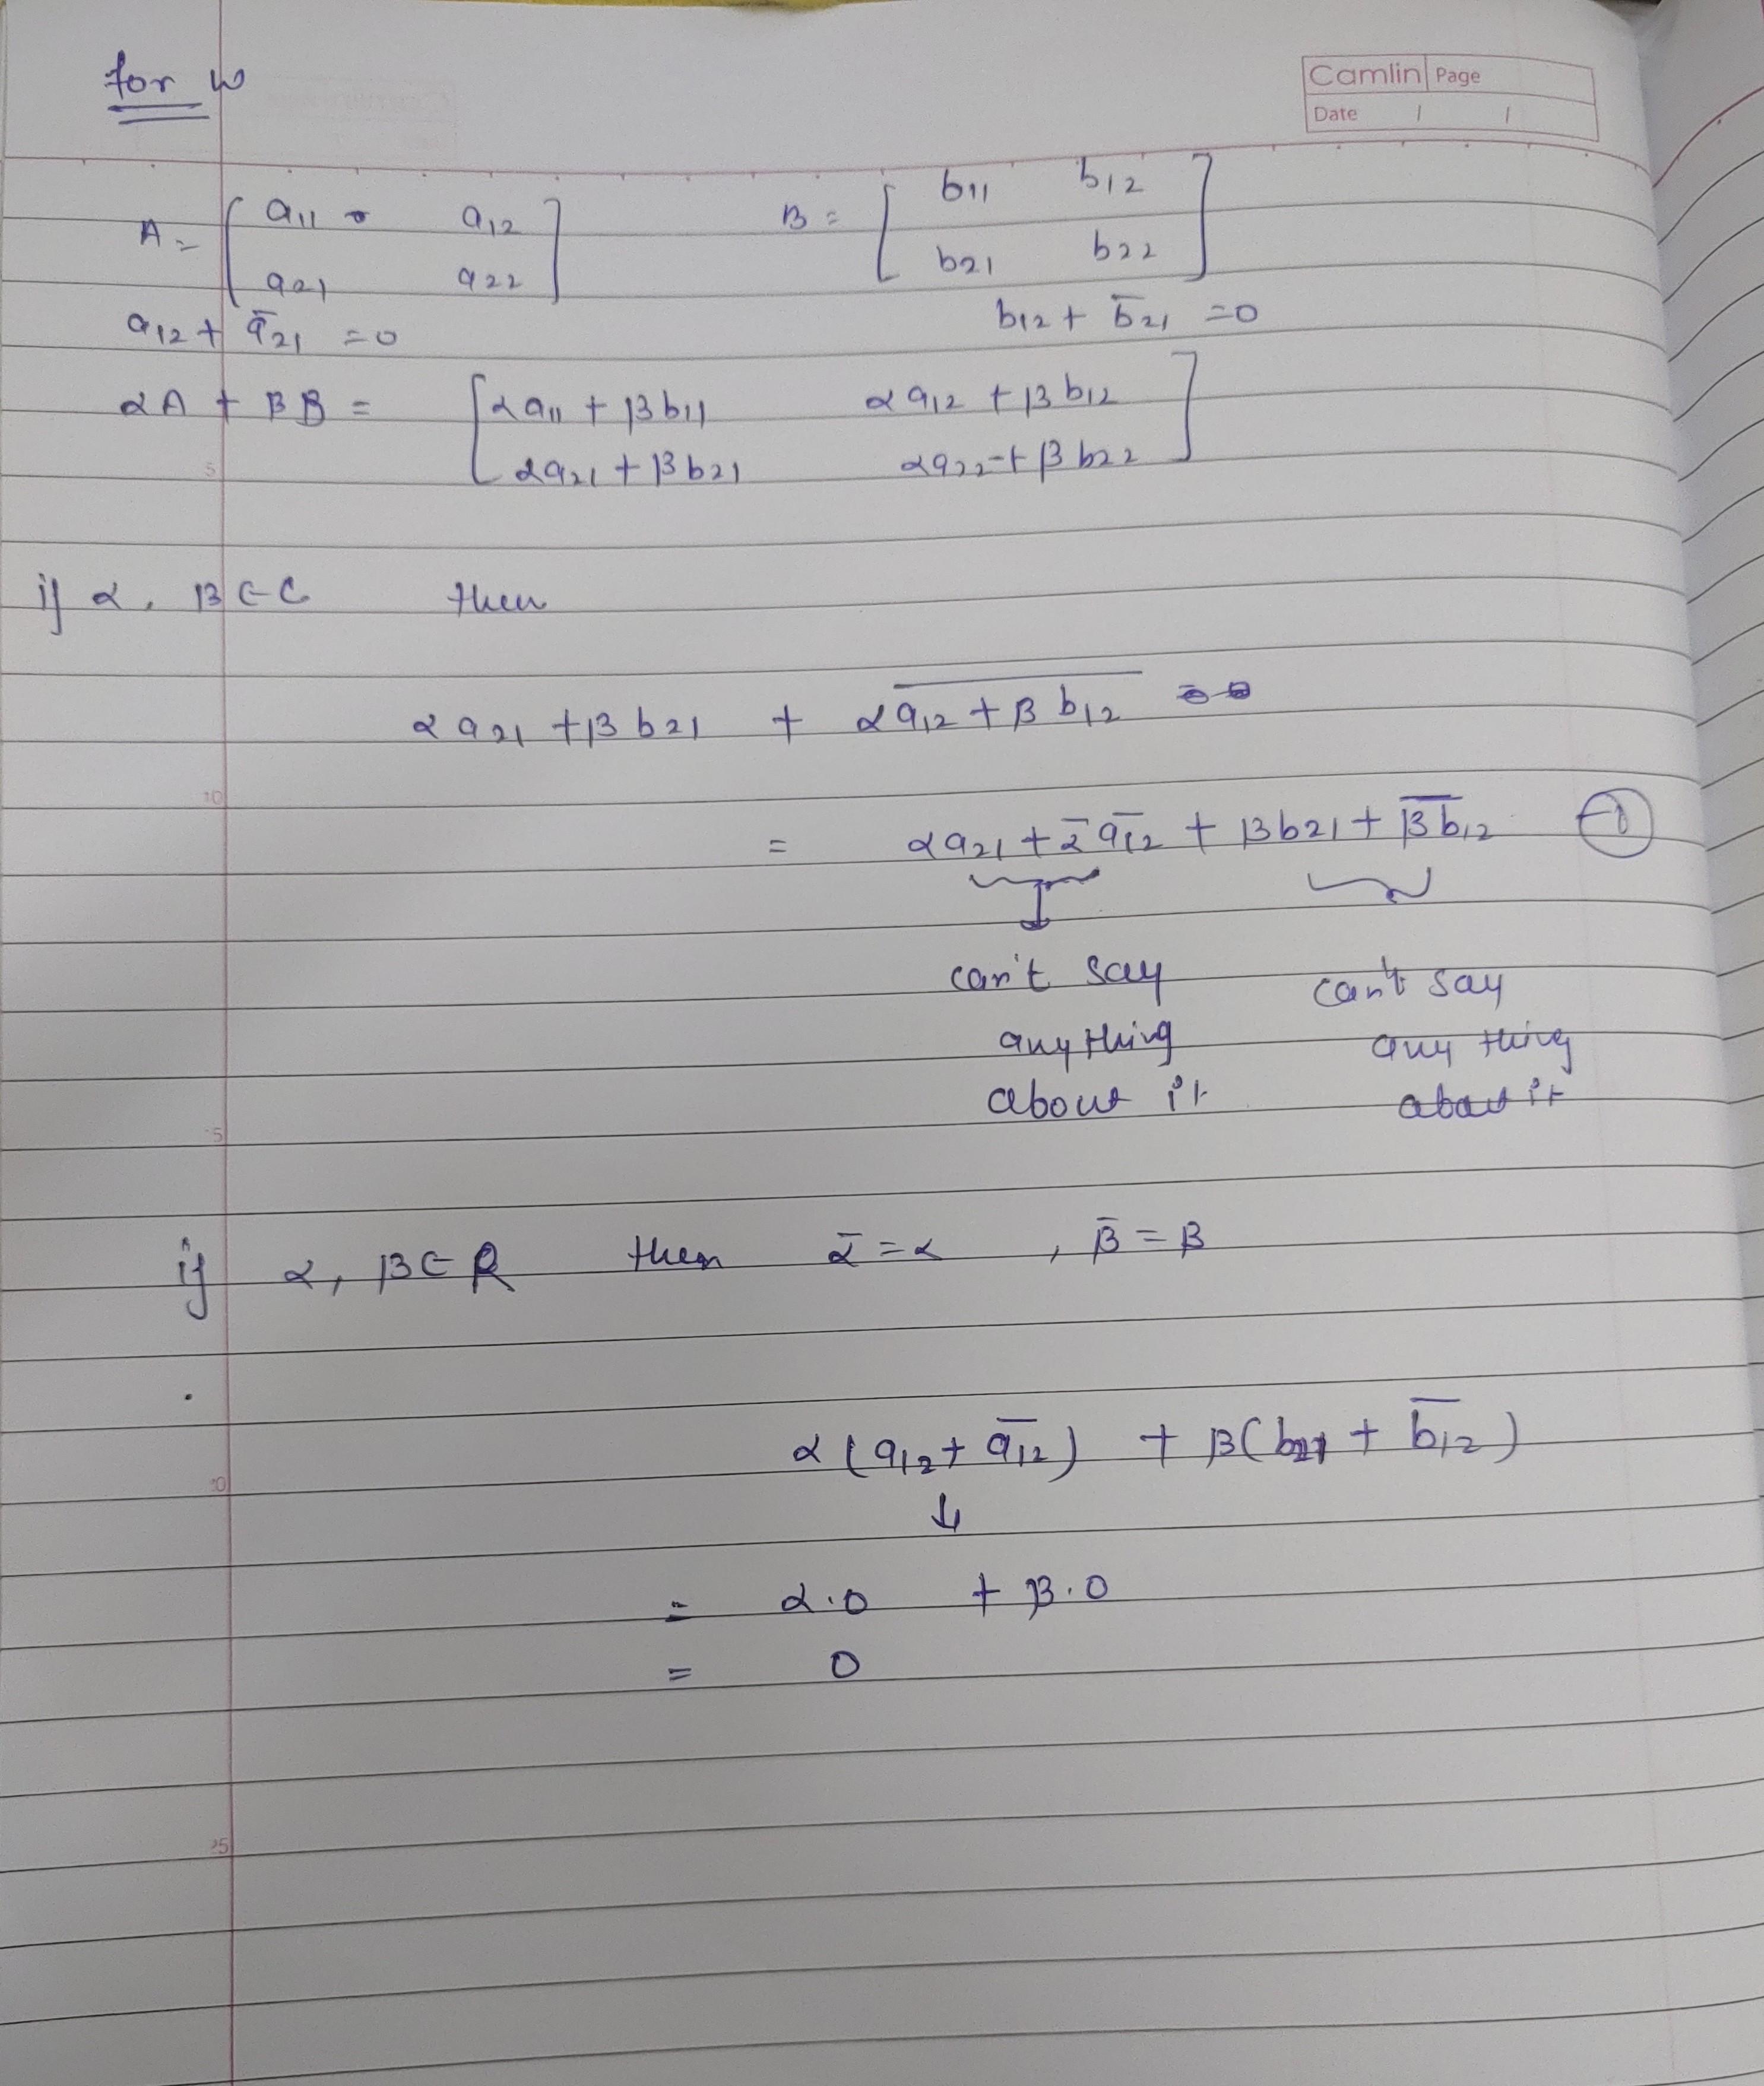 for W
Camlin Page
Date / /
A = [ a11 a12
a21 a22 ]
B = [ b11 b12
b21 b22 ]
a12 + ā21 = 0
b12 + b̄21 = 0
αA + βB = [ αa11 + βb11 αa12 + βb12
αa21 + βb21 αa22 + βb22 ]
5
if α, β ∈ C then
αa21 + βb21 + \overline{αa12 + βb12}
10
= αa21 + ᾱ ā12 + βb21 + \overline{β b}12 —①
can't say can't say
anything any thing
about it about it
if α, β ∈ R then ᾱ = α , β̄ = β
α (a12 + ā12) + β(b21 + b̄12)
↓
= α.0 + β.0
= 0
25